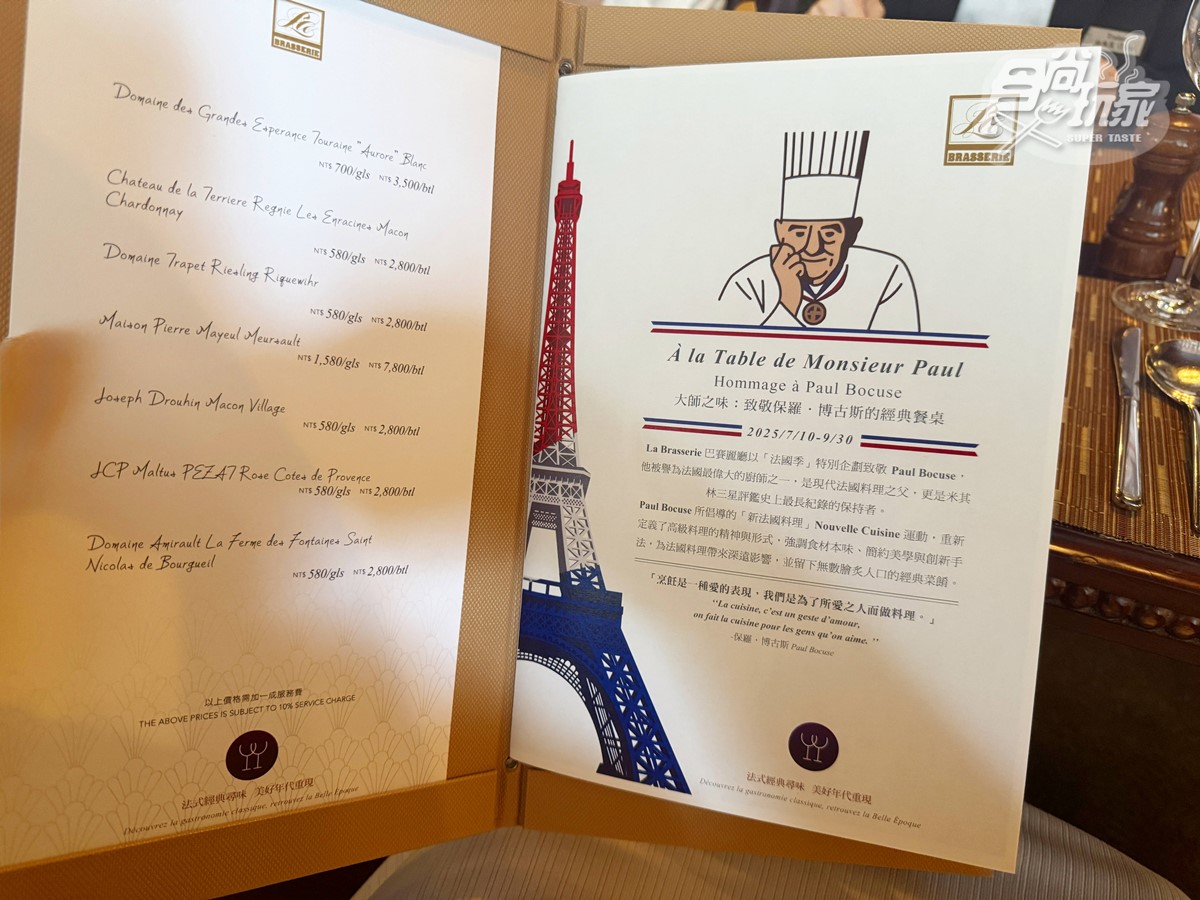 BRASSERIE
Domaine des Grandes Esperance Touraine "Aurore" Blanc
NT$ 700/gls NT$ 3,500/btl
Chateau de la Terriere Regnie Les Enracines Macon
Chardonnay
NT$ 580/gls NT$ 2,800/btl
Domaine Trapet Riesling Riquewihr
NT$ 580/gls NT$ 2,800/btl
Maison Pierre Mayeul Meursault
NT$ 1,580/gls NT$ 7,800/btl
Joseph Drouhin Macon Village
NT$ 580/gls NT$ 2,800/btl
JCP Maltus PEZAT Rose Cotes de Provence
NT$ 580/gls NT$ 2,800/btl
Domaine Amirault La Ferme des Fontaines Saint
Nicolas de Bourgueil
NT$ 580/gls NT$ 2,800/btl
以上價格需加一成服務費
THE ABOVE PRICES IS SUBJECT TO 10% SERVICE CHARGE
法式經典尋味 美好年代重現
Découvrez la gastronomie classique, retrouvez la Belle Époque
食尚玩家
SUPER TASTE
BRASSERIE
À la Table de Monsieur Paul
Hommage à Paul Bocuse
大師之味：致敬保羅・博古斯的經典餐桌
2025/7/10-9/30
La Brasserie 巴賽麗廳以「法國季」特別企劃致敬 Paul Bocuse，
他被譽為法國最偉大的廚師之一，是現代法國料理之父，更是米其
林三星評鑑史上最長紀錄的保持者。
Paul Bocuse 所倡導的「新法國料理」Nouvelle Cuisine 運動，重新
定義了高級料理的精神與形式，強調食材本味、簡約美學與創新手
法，為法國料理帶來深遠影響，並留下無數膾炙人口的經典菜餚。
「烹飪是一種愛的表現，我們是為了所愛之人而做料理。」
"La cuisine, c'est un geste d'amour,
on fait la cuisine pour les gens qu'on aime."
-保羅・博古斯 Paul Bocuse
法式經典尋味 美好年代重現
Découvrez la gastronomie classique, retrouvez la Belle Époque